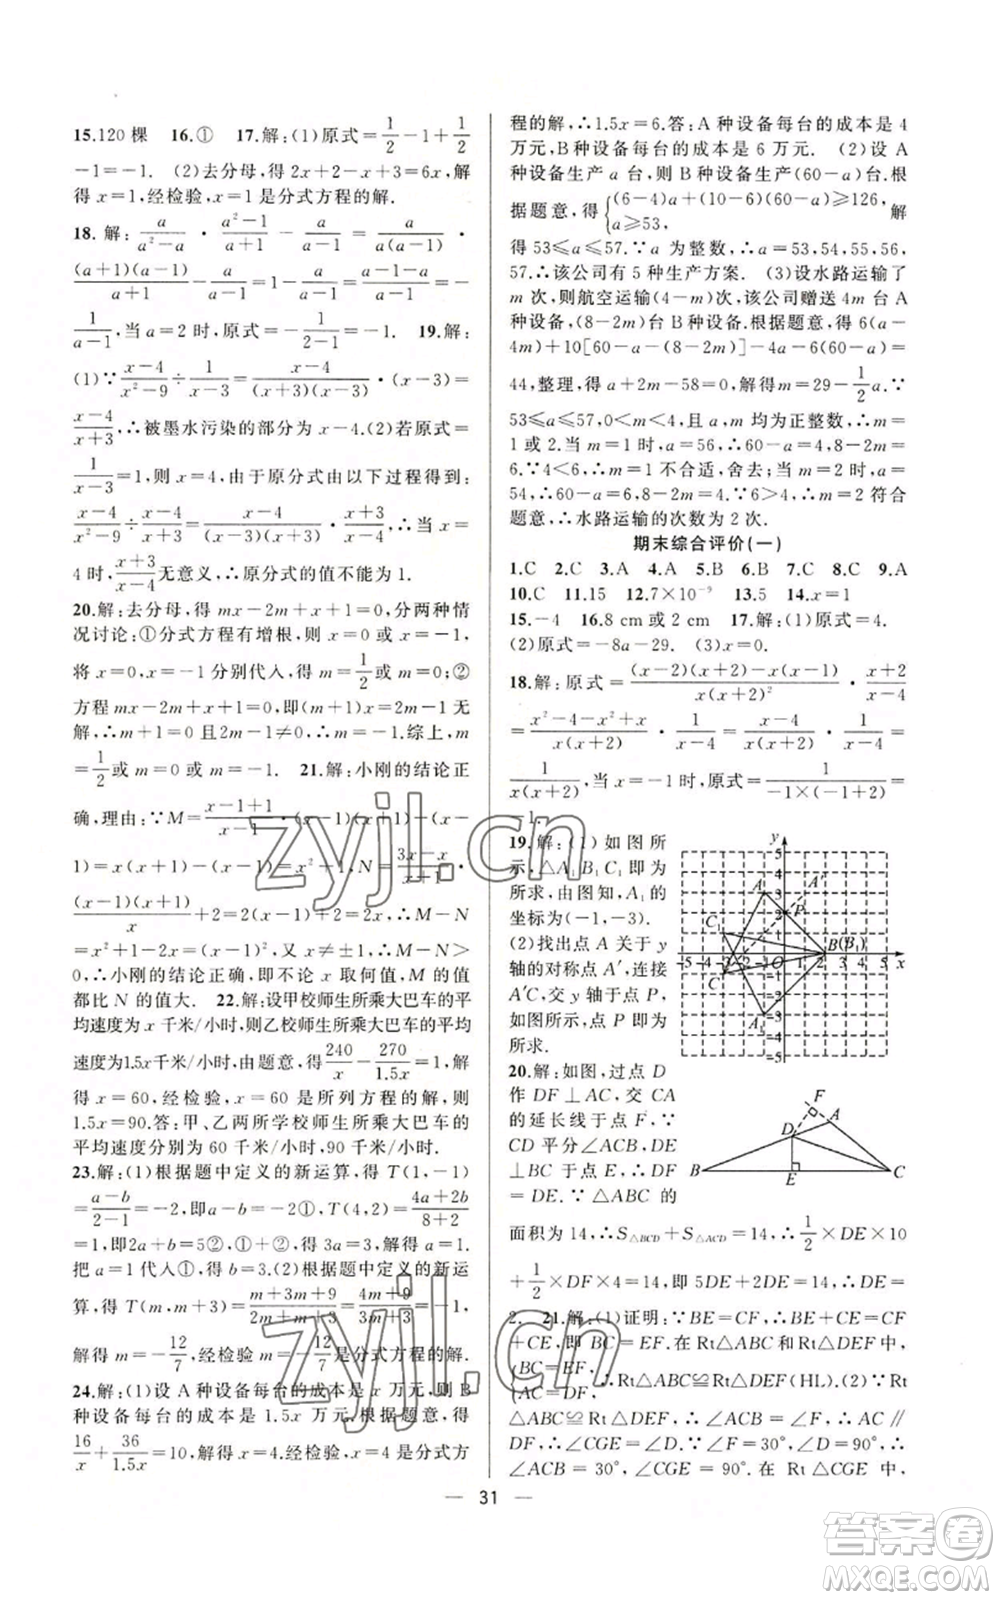 15.120 棵　16.①　17.解:(1)原式=1/2-1+1/2
-1=-1.　(2)去分母,得 2x+2-x+3=6x,解
得 x=1,经检验,x=1 是分式方程的解.
18. 解: a/(a²-a) · (a²-1)/(a+1) - (a-1)/1 = a/(a(a-1)) ·
((a+1)(a-1))/(a+1) - 1/(a-1)=1-1/(a-1)=-
1/(a-1),当 a=2 时,原式=-1/(2-1)=-1.　19.解:
(1)∵(x-4)/(x²-9)÷1/(x-3)=(x-4)/((x+3)(x-3))·(x-3)=
(x-4)/(x+3),∴被墨水污染的部分为 x-4.(2)若原式=
1/(x-3)=1,则 x=4,由于原分式由以下过程得到
(x-4)/(x²-9)÷(x-4)/(x+3)=(x-4)/((x-3)(x+3))·(x+3)/(x-4),∴当 x=
4 时,(x+3)/(x-4)无意义,∴原分式的值不能为 1.
20.解:去分母,得 mx-2m+1+x=0,分两种情
况讨论:①分式方程有增根,则 x=0 或 x=-1,
将 x=0,x=-1 分别代入,得 m=1/2或 m=0;②
方程 mx-2m+x+1=0,即(m+1)x=2m-1 无
解,∴m+1=0 且2m-1≠0,∴m=-1.综上,m
=1/2或 m=0 或 m=-1.　21.解:小刚的结论正
确,理由:∵M=(x-1+1)/(x-1)·(x+1)(x-1)-(x-
1)=x(x+1)-(x-1)=x²+1,N=(3x-x)/(x+1)·
((x-1)(x+1))/x+2=2(x-1)+2=2x,∴M-N
=x²+1-2x=(x-1)²,又 x≠±1,∴M-N>
0,∴小刚的结论正确,即不论 x 取何值,M 的值
都比 N 的值大.　22.解:设甲校师生所乘大巴车的平
均速度为 x 千米/小时,则乙校师生所乘大巴车的平均
速度为1.5x千米/小时,由题意,得240/x-270/1.5x=1,解
得 x=60,经检验,x=60 是所列方程的解,则
1.5x=90.答:甲、乙两所学校师生所乘大巴车的
平均速度分别为 60 千米/小时,90 千米/小时.
23.解:(1)根据题中定义的新运算,得 T(1,-1)
=(a-b)/(2-1)=-2,即a-b=-2①,T(4,2)=(4a+2b)/(8+2)
=1,即2a+b=5②,①+②,得 3a=3,解得 a=1.
把 a=1 代入①,得 b=3.(2)根据题中定义的新运
算,得 T(m,m+3)=(m+3m+9)/(2m+m+3)=(4m+9)/(3m+3)=-1,
解得 m=-12/7,经检验 m=-12/7是分式方程的解.
24.解:(1)设 A 种设备每台的成本是 x 万元,则 B
种设备每台的成本是 1.5x 万元.根据题意,得
16/x+36/1.5x=10,解得 x=4,经检验,x=4,是分式方
程的解,∴1.5x=6.答:A 种设备每台的成本是 4
万元,B 种设备每台的成本是 6 万元.　(2)设 A
种设备生产 a 台,则 B 种设备生产(60-a)台.根
据题意,得{(6-4)a+(10-6)(60-a)≥126, a≥53, 解
得 53≤a≤57.∵a 为整数,∴a=53,54,55,56,
57.∴该公司有 5 种生产方案.　(3)设水路运输了
m 次,则航空运输(4-m)次,该公司赠送 4m 台 A
种设备,(8-2m)台 B 种设备.根据题意,得 6(a-
4m)+10[60-a-(8-2m)]-4a-6(60-a)=
44,整理,得 a+2m-58=0,解得 m=29-1/2a.∵
53≤a≤57,0<m<4,且 a,m 均为正整数,∴m=
1 或 2.当 m=1 时,a=56,∴60-a=4,8-2m=
6.∵4<6,∴m=1不合适,舍去;当 m=2 时,a=
54,∴60-a=6,8-2m=4.∵6>4,∴m=2 符合
题意,∴水路运输的次数为 2 次.
期末综合评价(一)
1.C　2.C　3.A　4.A　5.B　6.B　7.C　8.C　9.A
10.C　11.15　12.7×10⁻⁹　13.5　14.x=1
15.-4　16.8 cm或 2 cm　17.解:(1)原式=4.
(2)原式=-8a-29.　(3)x=0.
18.解:原式=((x-2)(x+2)-x(x-1))/(x(x+2)²)·(x+2)/(x-4)
=(x²-4-x²+x)/(x(x+2))·1/(x-4)=(x-4)/(x(x+2))·1/(x-4)=
1/(x(x+2)),当 x=-1时,原式=1/(-1×(-1+2))=
-1.
19.解:(1)如图所
示,△A₁B₁C₁即为
所求,由图知,A₁的
坐标为(-1,-3).
(2)找出点 A 关于 y
轴的对称点 A′,连接
A′C,交 y轴于点 P,
如图所示,点 P 即为
所求.
20.解:如图,过点 D
作 DF⊥AC,交 CA
的延长线于点 F,∵
CD 平分∠ACB,DE
⊥BC 于点 E,∴DF
=DE.∵△ABC 的
面积为 14,∴S△BCD+S△ACD=14,∴1/2×DE×10
+1/2×DF×4=14,即 5DE+2DE=14,∴DE=
2.　21.解:(1)证明:∵BE=CF,∴BE+CE=CF
+CE,即 BC=EF.在 Rt△ABC 和Rt△DEF 中,
{BC=EF, AC=DF, ∴Rt△ABC≌Rt△DEF(HL).(2)∵Rt
△ABC≌Rt△DEF,∴∠ACB=∠F,∴AC∥
DF,∴∠CGE=∠D.∵∠F=30°,∠D=60°,
∴∠ACB=30°,∠CGE=60°.在 Rt△ABC 中,
31
zyjl.cn
zyjl.cn
答案圈
MXQE.COM